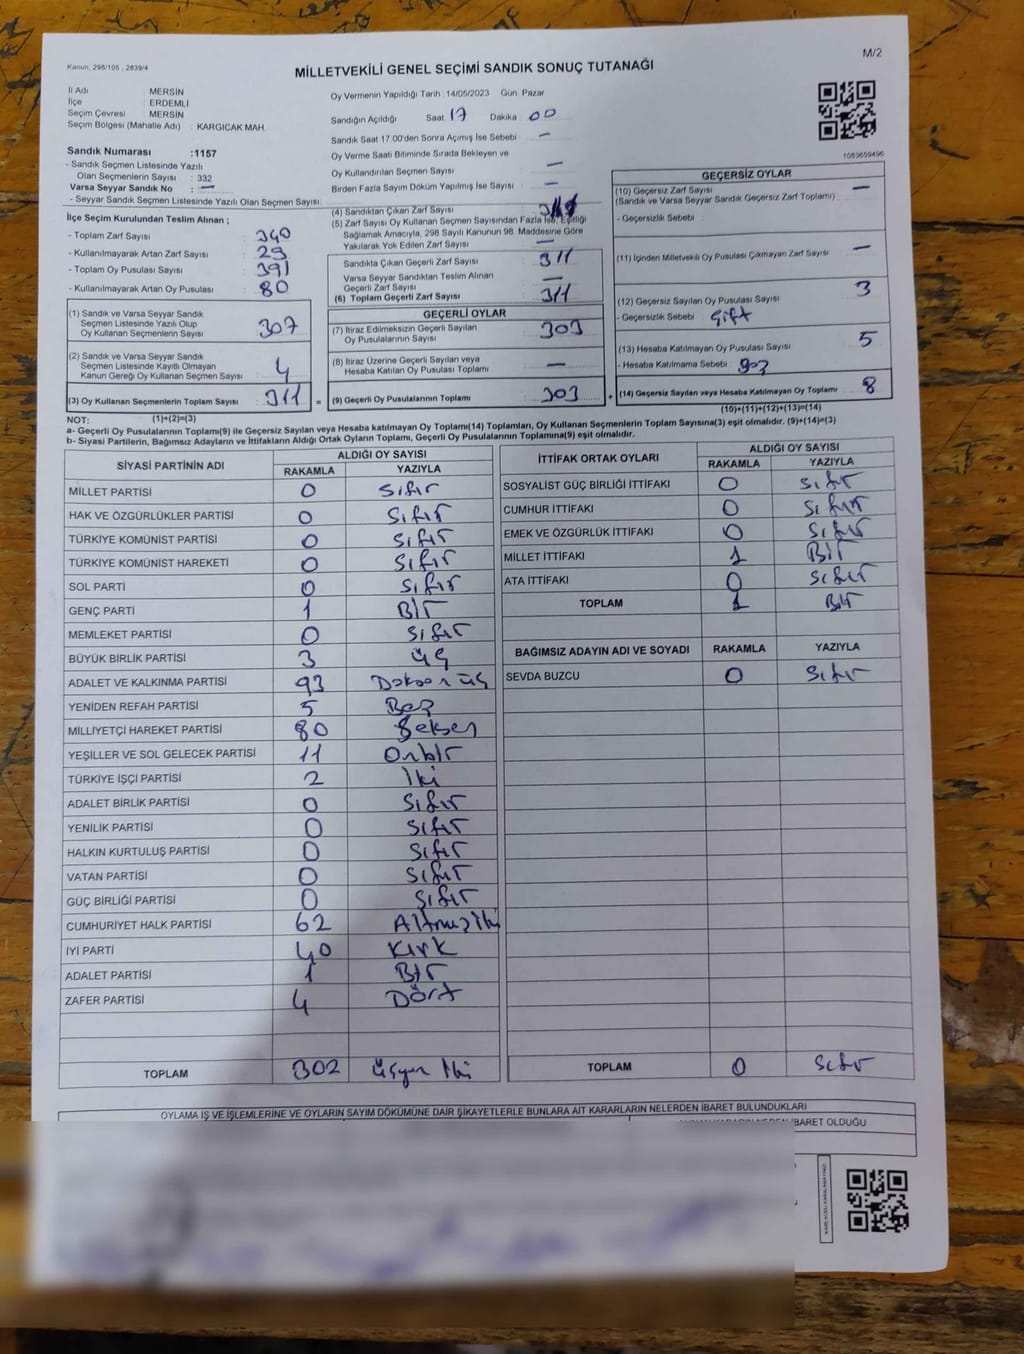 M/2
Kanun. 298/105 , 2839/4
MİLLETVEKİLİ GENEL SEÇİMİ SANDIK SONUÇ TUTANAĞI
İl Adı : MERSİN
İlçe : ERDEMLİ
Seçim Çevresi : MERSİN
Seçim Bölgesi (Mahalle Adı) : KARGICAK MAH.
Sandık Numarası :1157
- Sandık Seçmen Listesinde Yazılı
Olan Seçmenlerin Sayısı : 332
Varsa Seyyar Sandık No : —
- Seyyar Sandık Seçmen Listesinde Yazılı Olan Seçmen Sayısı:
Oy Vermenin Yapıldığı Tarih :14/05/2023 Gün: Pazar
Sandığın Açıldığı Saat: 17 Dakika: 00
Sandık Saat 17.00'den Sonra Açımış İse Sebebi : —
Oy Verme Saati Bitiminde Sırada Bekleyen ve
Oy Kullandırılan Seçmen Sayısı : —
Birden Fazla Sayım Döküm Yapılmış İse Sayısı : —
1083659496
İlçe Seçim Kurulundan Teslim Alınan ;
- Toplam Zarf Sayısı : 340
- Kullanılmayarak Artan Zarf Sayısı : 29
- Toplam Oy Pusulası Sayısı : 391
- Kullanılmayarak Artan Oy Pusulası : 80
(1) Sandık ve Varsa Seyyar Sandık
Seçmen Listesinde Yazılı Olup
Oy Kullanan Seçmenlerin Sayısı : 307
(2) Sandık ve Varsa Seyyar Sandık
Seçmen Listesinde Kayıtlı Olmayan
Kanun Gereği Oy Kullanan Seçmen Sayısı : 4
(3) Oy Kullanan Seçmenlerin Toplam Sayısı : 311
(1)+(2)=(3)
(4) Sandıktan Çıkan Zarf Sayısı :
(5) Zarf Sayısı Oy Kullanan Seçmen Sayısından Fazla İse, Eşitliği
Sağlamak Amacıyla, 298 Sayılı Kanunun 98. Maddesine Göre
Yakılarak Yok Edilen Zarf Sayısı : —
Sandıkta Çıkan Geçerli Zarf Sayısı : 311
Varsa Seyyar Sandıktan Teslim Alınan
Geçerli Zarf Sayısı : —
(6) Toplam Geçerli Zarf Sayısı : 311
GEÇERLİ OYLAR
(7) İtiraz Edilmeksizin Geçerli Sayılan
Oy Pusulalarının Sayısı : 303
(8) İtiraz Üzerine Geçerli Sayılan veya
Hesaba Katılan Oy Pusulası Toplamı : —
= (9) Geçerli Oy Pusulalarının Toplamı : 303 +
GEÇERSİZ OYLAR
(10) Geçersiz Zarf Sayısı : —
(Sandık ve Varsa Seyyar Sandık Geçersiz Zarf Toplamı)
- Geçersizlik Sebebi :
(11) İçinden Milletvekili Oy Pusulası Çıkmayan Zarf Sayısı : —
(12) Geçersiz Sayılan Oy Pusulası Sayısı : 3
- Geçersizlik Sebebi : Çift
(13) Hesaba Katılmayan Oy Pusulası Sayısı : 5
- Hesaba Katılmama Sebebi :
(14) Geçersiz Sayılan veya Hesaba Katılmayan Oy Toplamı : 8
(10)+(11)+(12)+(13)=(14)
NOT:
a- Geçerli Oy Pusulalarının Toplamı(9) ile Geçersiz Sayılan veya Hesaba katılmayan Oy Toplamı(14) Toplamları, Oy Kullanan Seçmenlerin Toplam Sayısına(3) eşit olmalıdır. (9)+(14)=(3)
b- Siyasi Partilerin, Bağımsız Adayların ve İttifakların Aldığı Ortak Oyların Toplamı, Geçerli Oy Pusulalarının Toplamına(9) eşit olmalıdır.
SİYASİ PARTİNİN ADI ALDIĞI OY SAYISI
RAKAMLA YAZIYLA
MİLLET PARTİSİ 0 Sıfır
HAK VE ÖZGÜRLÜKLER PARTİSİ 0 Sıfır
TÜRKİYE KOMÜNİST PARTİSİ 0 Sıfır
TÜRKİYE KOMÜNİST HAREKETİ 0 Sıfır
SOL PARTİ 0 Sıfır
GENÇ PARTİ 1 Bir
MEMLEKET PARTİSİ 0 Sıfır
BÜYÜK BİRLİK PARTİSİ 3 Üç
ADALET VE KALKINMA PARTİSİ 93 Doksan üç
YENİDEN REFAH PARTİSİ 5 Beş
MİLLİYETÇİ HAREKET PARTİSİ 80 Seksen
YEŞİLLER VE SOL GELECEK PARTİSİ 11 Onbir
TÜRKİYE İŞÇİ PARTİSİ 2 İki
ADALET BİRLİK PARTİSİ 0 Sıfır
YENİLİK PARTİSİ 0 Sıfır
HALKIN KURTULUŞ PARTİSİ 0 Sıfır
VATAN PARTİSİ 0 Sıfır
GÜÇ BİRLİĞİ PARTİSİ 0 Sıfır
CUMHURİYET HALK PARTİSİ 62 Altmışiki
İYİ PARTİ 40 Kırk
ADALET PARTİSİ 1 Bir
ZAFER PARTİSİ 4 Dört
TOPLAM 302 üçyüz iki
İTTİFAK ORTAK OYLARI ALDIĞI OY SAYISI
RAKAMLA YAZIYLA
SOSYALİST GÜÇ BİRLİĞİ İTTİFAKI 0 Sıfır
CUMHUR İTTİFAKI 0 Sıfır
EMEK VE ÖZGÜRLÜK İTTİFAKI 0 Sıfır
MİLLET İTTİFAKI 1 Bir
ATA İTTİFAKI 0 Sıfır
TOPLAM 1 Bir
BAĞIMSIZ ADAYIN ADI VE SOYADI RAKAMLA YAZIYLA
SEVDA BUZCU 0 Sıfır
TOPLAM 0 Sıfır
OYLAMA İŞ VE İŞLEMLERİNE VE OYLARIN SAYIM DÖKÜMÜNE DAİR ŞİKAYETLERLE BUNLARA AİT KARARLARIN NELERDEN İBARET BULUNDUKLARI
İBARET OLDUĞU